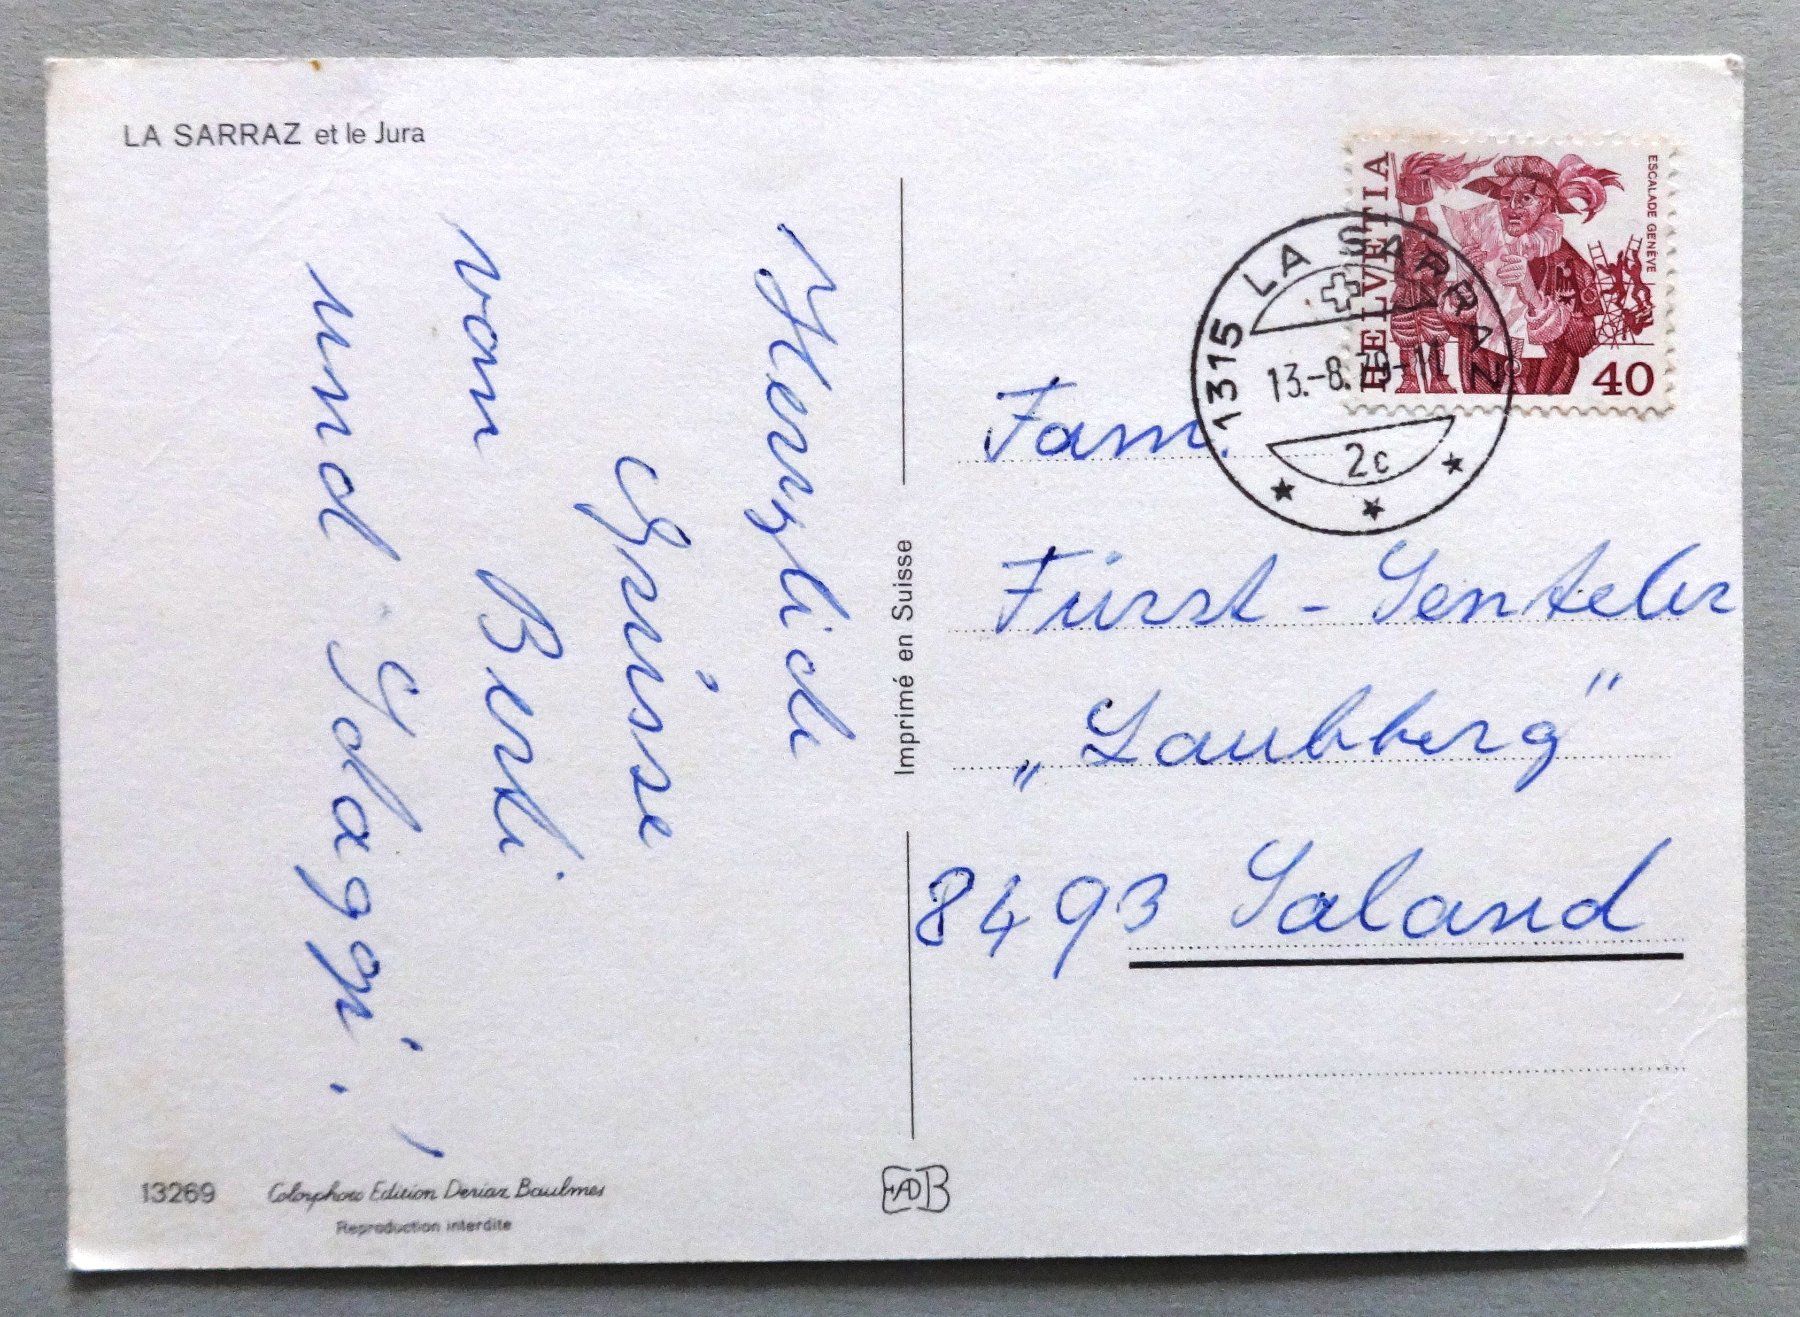 LA SARRAZ et le Jura
Herzliche
Grüsse
von Berti
und Idaggi!
13269
Colorphoto Edition Deriaz Baulmes
Reproduction interdite
Imprimé en Suisse
EADB
HELVETIA
ESCALADE GENÈVE
40
1315 LA SARRAZ
13.-8.79-11
2c
Fam.
Fürst-Senteler
„Laubberg"
8493 Saland